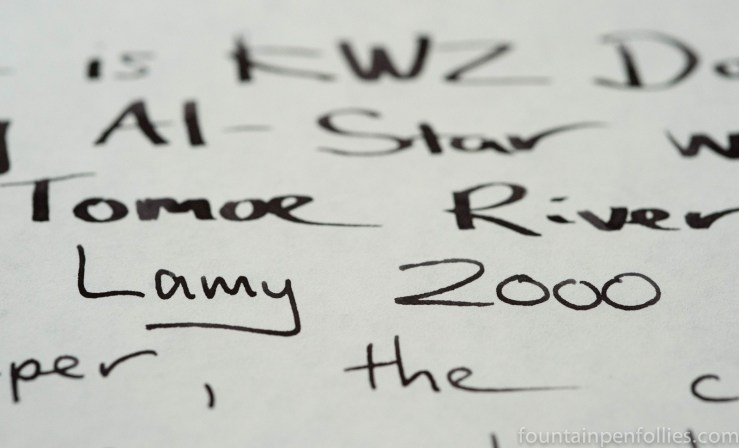 is KWZ
Al-Star
Tomoe River
Lamy 2000
per, the
fountainpenfollies.com